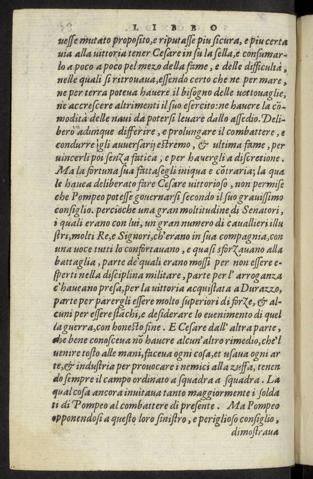 LIBRO
vesse mutato proposito, e riputasse piu sicura, e piu certa
via alla vittoria tener Cesare in su la sella, e consumar-
lo a poco a poco pel mezo della fame, e delle difficultà,
nelle quali si ritrovava, essendo certo che ne per mare,
ne per terra poteva havere il bisogno delle vettovaglie,
ne accrescere altrimenti il suo esercito: ne havere la cō-
modità delle navi da potersi levare dallo assedio. Deli-
berò adunque differire, e prolungare il combattere, e
condurre igli avversarij estremo, & ultima fame, per
vincerli poi senza fatica, e per havergli a discretione.
Ma la fortuna sua fattasegli iniqua e cōtraria; la qua
le havea deliberato fare Cesare vittorioso, non permise
che Pompeo potesse governarsi secondo il suo gravissimo
consiglio. percioche una gran moltitudine di Senatori,
i quali erano con lui, un gran numero di cavallieri illu
stri, molti Re, e Signori, ch'erano in sua compagnia, con
una voce tutti lo confortavano, e quasi sforzavano alla
battaglia, parte de quali erano mossi per non essere e-
sperti nella disciplina militare, parte per l'arroganza
c'haveano presa, per la vittoria acquistata a Durazzo,
parte per parergli essere molto superiori di forze, & al-
cuni per essere stāchi, e desiderare lo evenimento di quel
la guerra, con honesto fine. E Cesare dall'altra parte,
che bene conosceva nō havere alcun'altro rimedio, che'l
venire tosto alle mani, faceva ogni cosa, et usava ogni ar
te, & industria per provocare i nemici alla zuffa, tenen
do sempre il campo ordinato a squadra a squadra. La
qual cosa ancora invitava tanto maggiormente i solda
ti di Pompeo al combattere di presente. Ma Pompeo
opponendosi a questo loro sinistro, e periglioso consiglio,
dimostrava